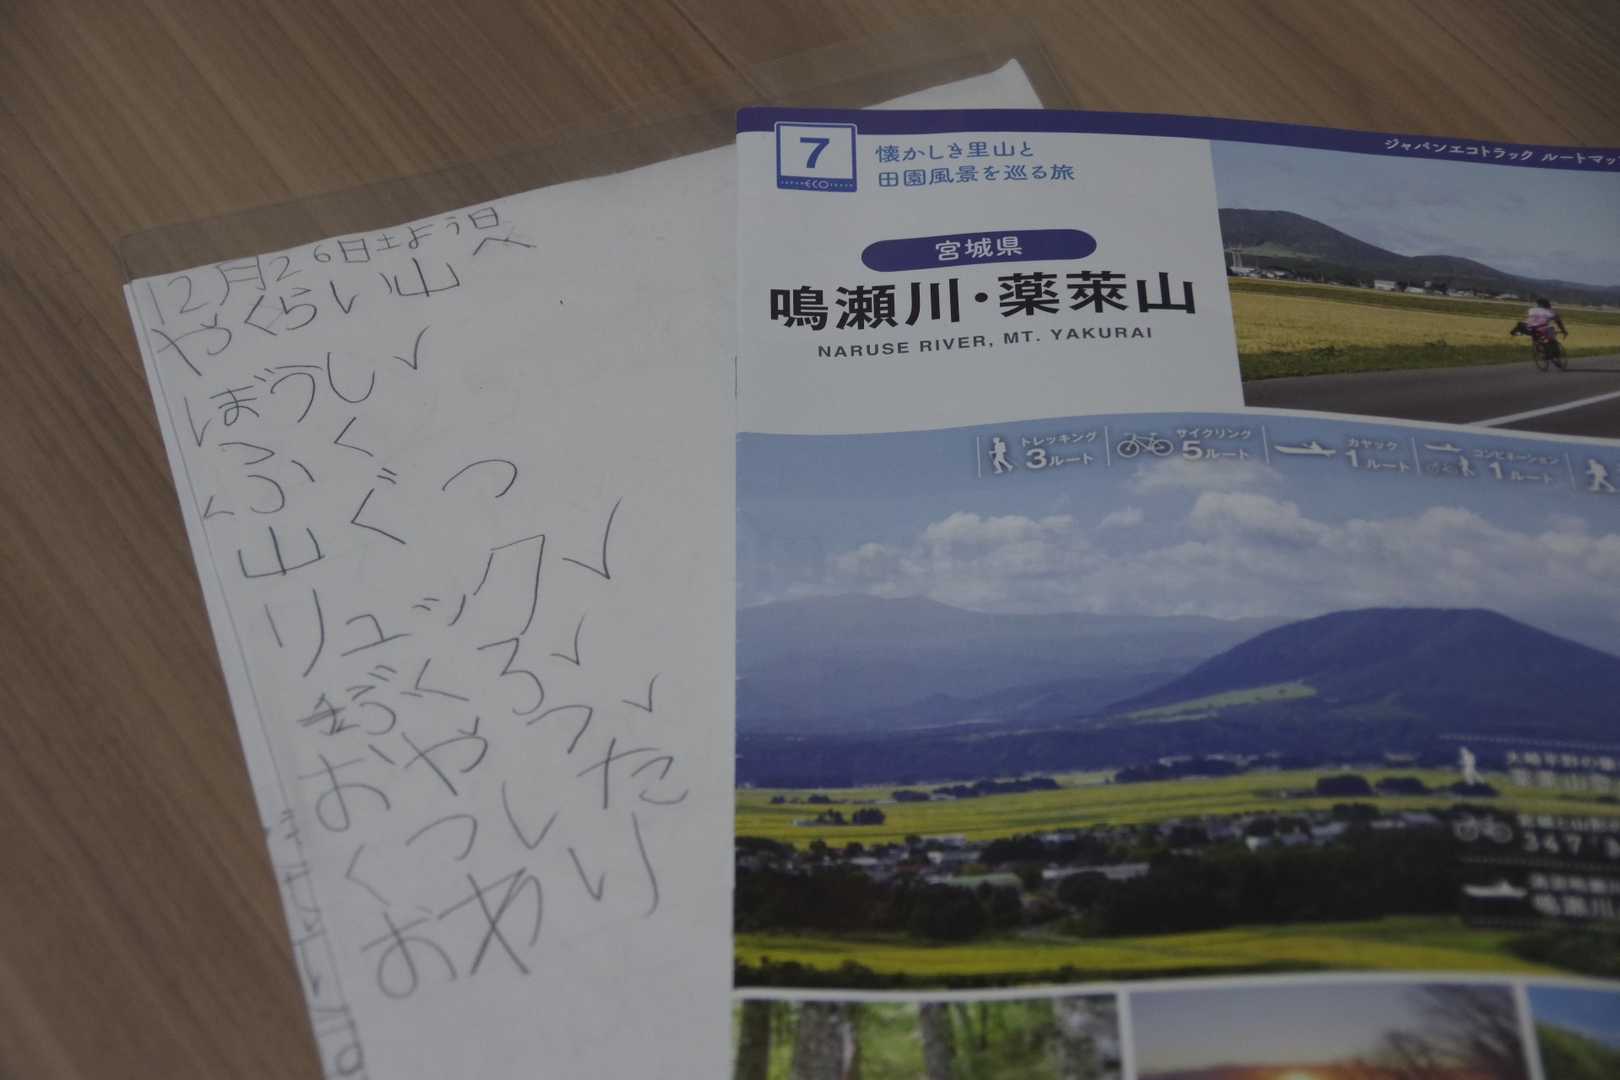 12月26日土よう日
やくらい山へ
ぼうし✓
ふく
山ぐつ
リュック✓
ぶくろ✓
おやつ✓
くつした
おわり
7
懐かしき里山と
田園風景を巡る旅
宮城県
鳴瀬川・薬萊山
NARUSE RIVER, MT. YAKURAI
ジャパンエコトラック ルートマッ
トレッキング
3ルート
サイクリング
5ルート
カヤック
1ルート
コンビネーション
1ルート
347
鳴瀬川